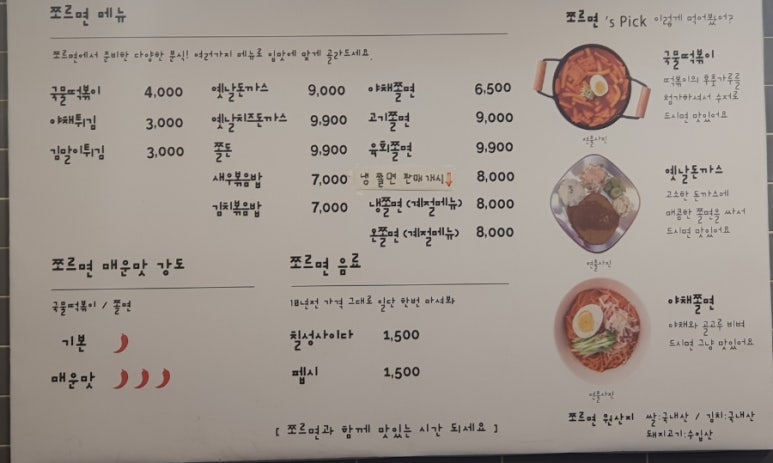 쪼르면 메뉴
쪼르면에서 준비한 다양한 분식! 여러가지 메뉴로 입맛에 맞게 골라드세요.
국물떡볶이 4,000
야채튀김 3,000
김말이튀김 3,000
옛날돈까스 9,000
옛날치즈돈까스 9,900
쫄돈 9,900
새우볶음밥 7,000
김치볶음밥 7,000
야채쫄면 6,500
고기쫄면 9,000
육회쫄면 9,900
냉 쫄면 판매 개시 8,000
냉쫄면 (계절메뉴) 8,000
온쫄면 (계절메뉴) 8,000
쪼르면 매운맛 강도
국물떡볶이 / 쫄면
기본
매운맛
쪼르면 음료
18년전 가격 그대로 일단 한번 마셔봐
칠성사이다 1,500
펩시 1,500
[ 쪼르면과 함께 맛있는 시간 되세요 ]
쪼르면 's Pick 이렇게 먹어봤어?
국물떡볶이
떡볶이의 후룻가루를
첨가하셔서 수저로
드시면 맛있어요
연출사진
옛날돈까스
고소한 돈까스에
매콤한 쫄면을 싸서
드시면 맛있어요
연출사진
야채쫄면
야채와 골고루 비벼
드시면 그냥 맛있어요
연출사진
쪼르면 원산지 쌀:국내산 / 김치:국내산
돼지고기:수입산